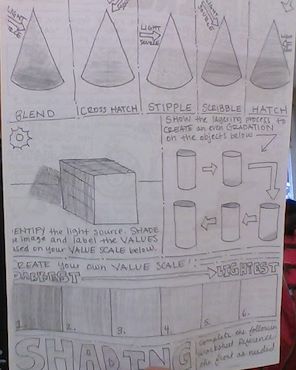 LIGHT
LIGHT
SOURCE
LIGHT
SOURCE
BLEND
CROSS HATCH
STIPPLE
SCRIBBLE
HATCH
SHOW the layering process to
CREATE an even GRADATION
on the objects below
IDENTIFY the light source. SHADE
image and label the VALUES
used on your VALUE SCALE below.
CREATE your own VALUE SCALE!
DARKEST
LIGHTEST
1. 2. 3. 4. 5. 6.
SHADING
Complete the following
worksheet. Reference
the front as needed